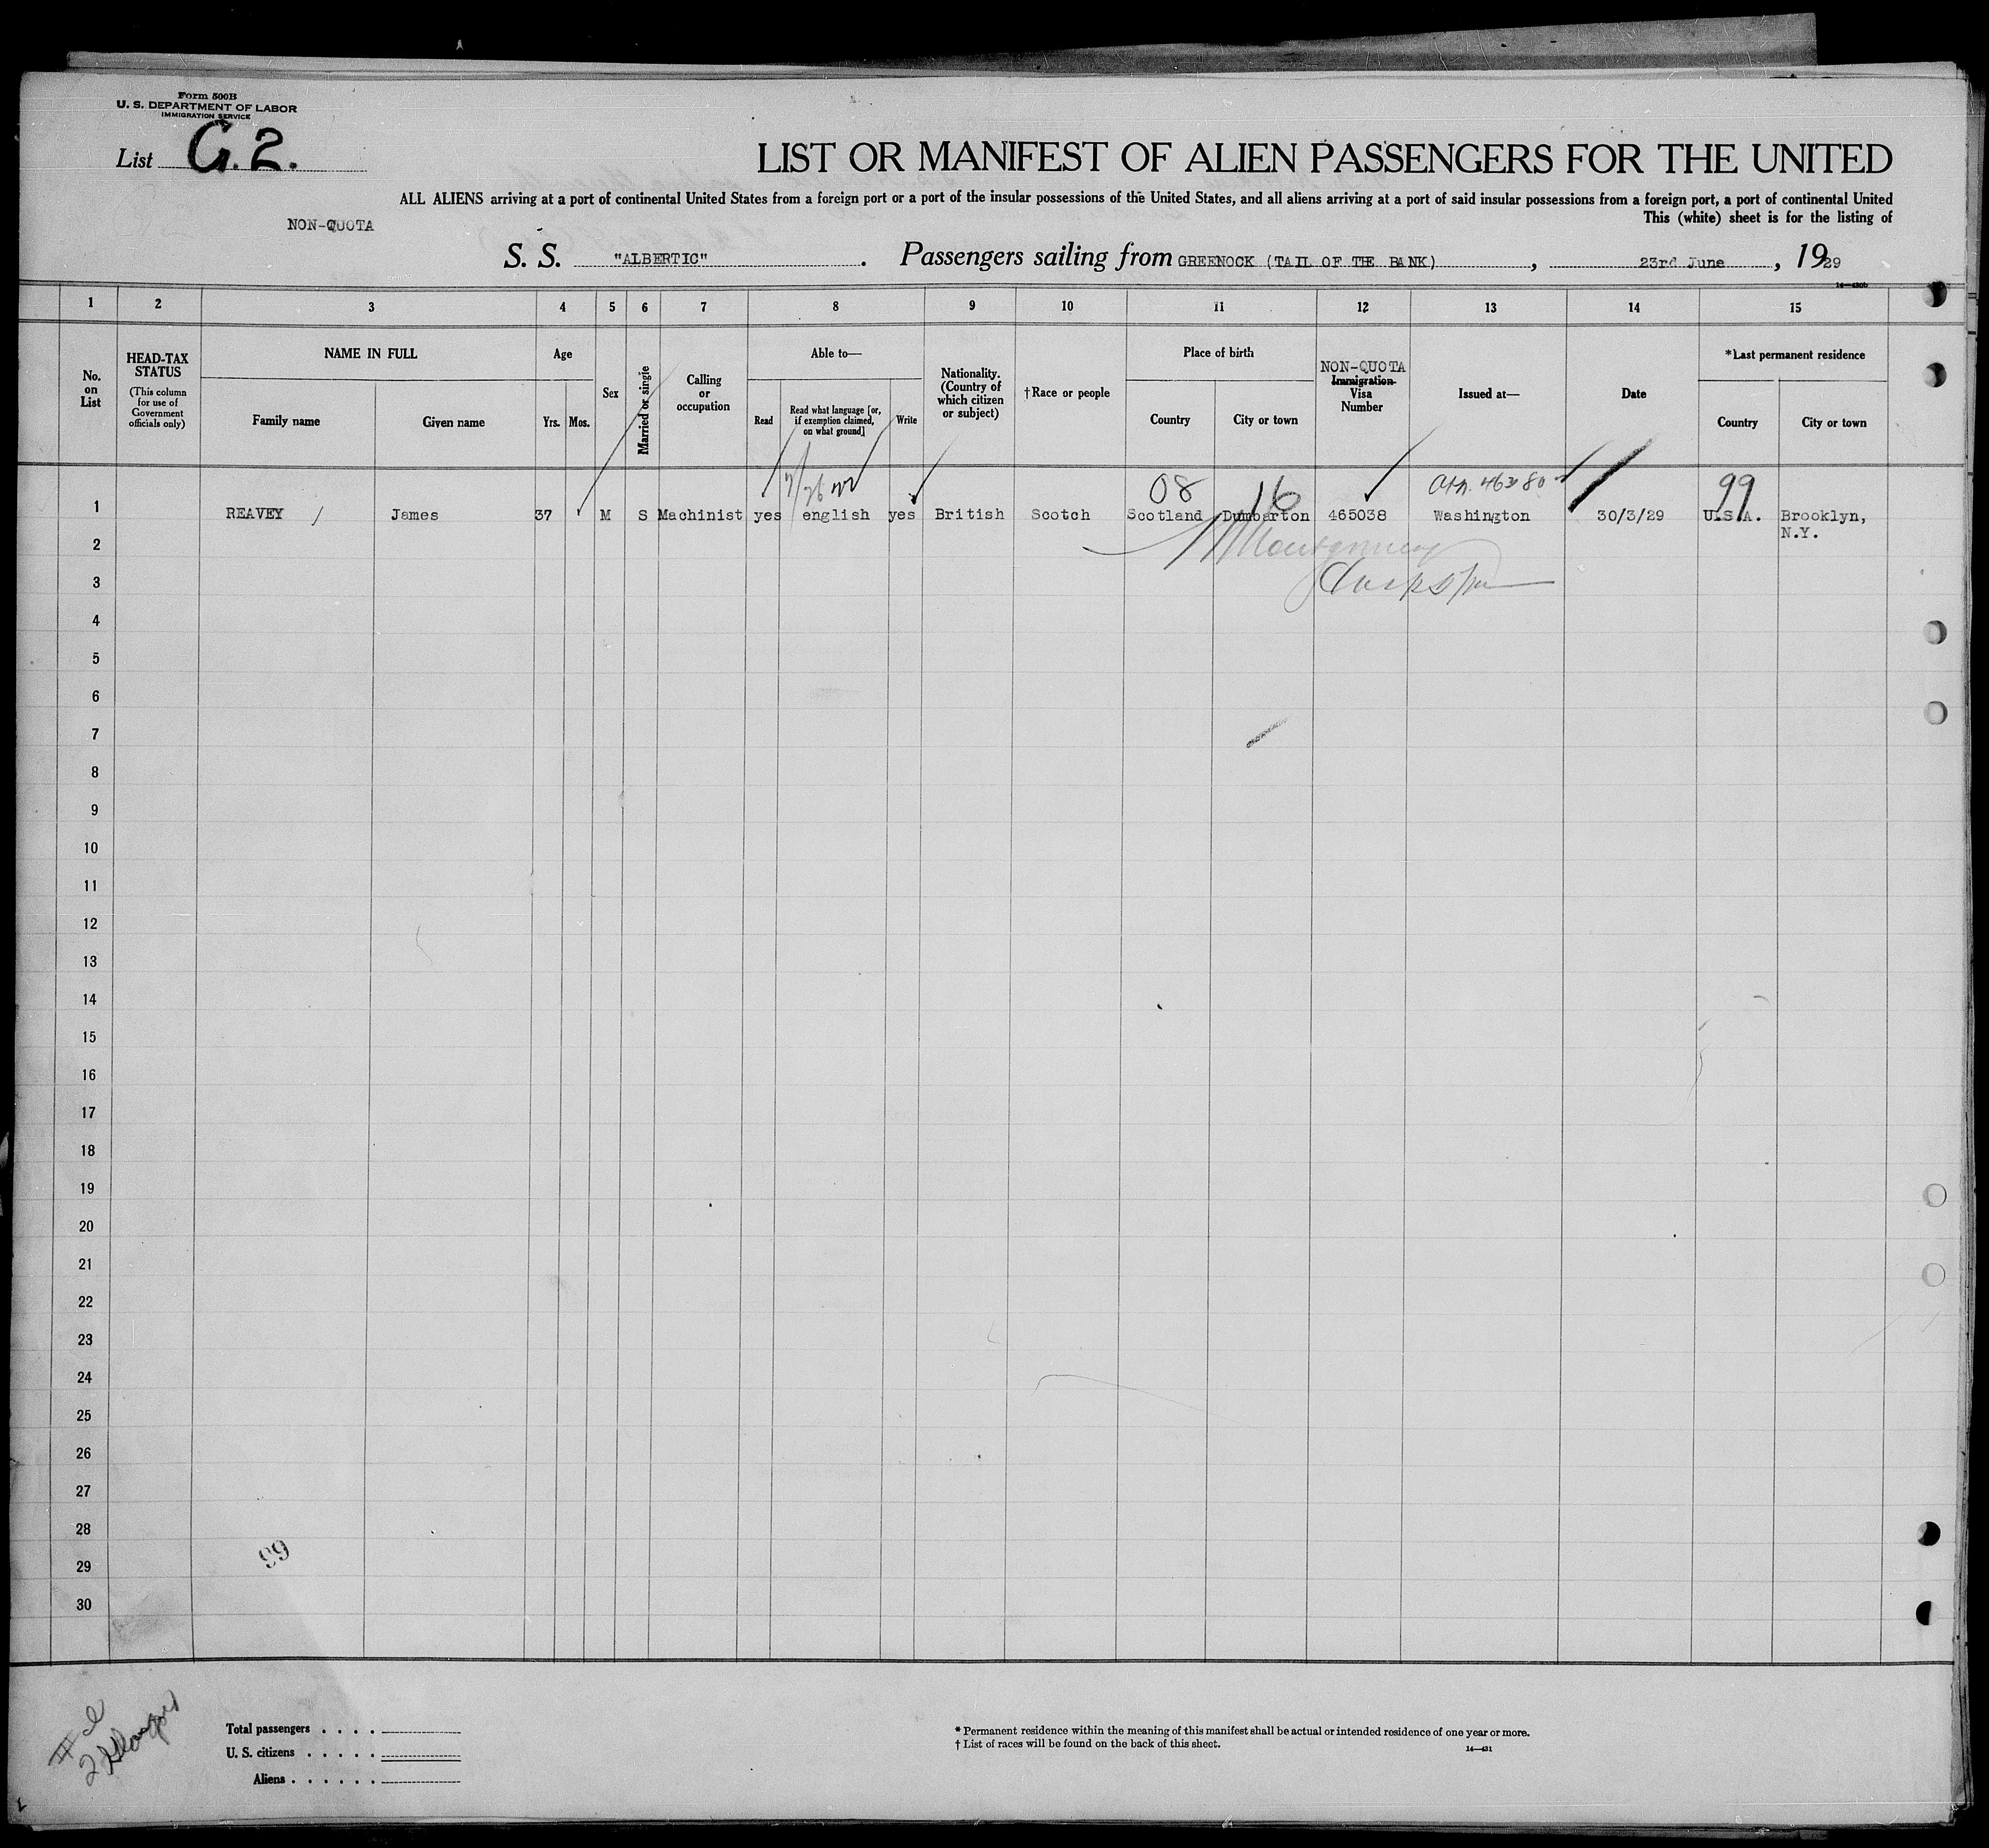 Form 500B
U. S. DEPARTMENT OF LABOR
IMMIGRATION SERVICE
List G.2.
LIST OR MANIFEST OF ALIEN PASSENGERS FOR THE UNITED
ALL ALIENS arriving at a port of continental United States from a foreign port or a port of the insular possessions of the United States, and all aliens arriving at a port of said insular possessions from a foreign port, a port of continental United
This (white) sheet is for the listing of
NON-QUOTA
S. S. "ALBERTIC". Passengers sailing from GREENOCK (TAIL OF THE BANK), 23rd June, 1929
14—430b
1 2 3 4 5 6 7 8 9 10 11 12 13 14 15
No. on List
HEAD-TAX STATUS
(This column for use of Government officials only)
NAME IN FULL
Family name Given name
Age
Yrs. Mos.
Sex
Married or single
Calling or occupation
Able to—
Read
Read what language [or, if exemption claimed, on what ground]
Write
Nationality. (Country of which citizen or subject)
†Race or people
Place of birth
Country City or town
NON-QUOTA
Immigration Visa Number
Issued at—
Date
*Last permanent residence
Country City or town
08 16 99
1 REAVEY James 37 M S Machinist yes english yes British Scotch Scotland Dumbarton 465038 Washington 30/3/29 U.S.A. Brooklyn,
N.Y.
2
Montgomery
3
4
5
6
7
8
9
10
11
12
13
14
15
16
17
18
19
20
21
22
23
24
25
26
27
28
29
99
30
Total passengers . . . .
U. S. citizens . . . . .
Aliens . . . . . .
* Permanent residence within the meaning of this manifest shall be actual or intended residence of one year or more.
† List of races will be found on the back of this sheet.
14—431